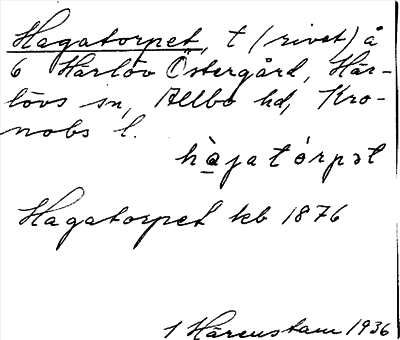 Hagatorpet, t (rivet) å
6 Härlöv Östergård, Här-
lövs sn, Allbo hd, Kro-
nobs l.
hàgatórpət
Hagatorpet kb 1876
1 Härenstam 1936